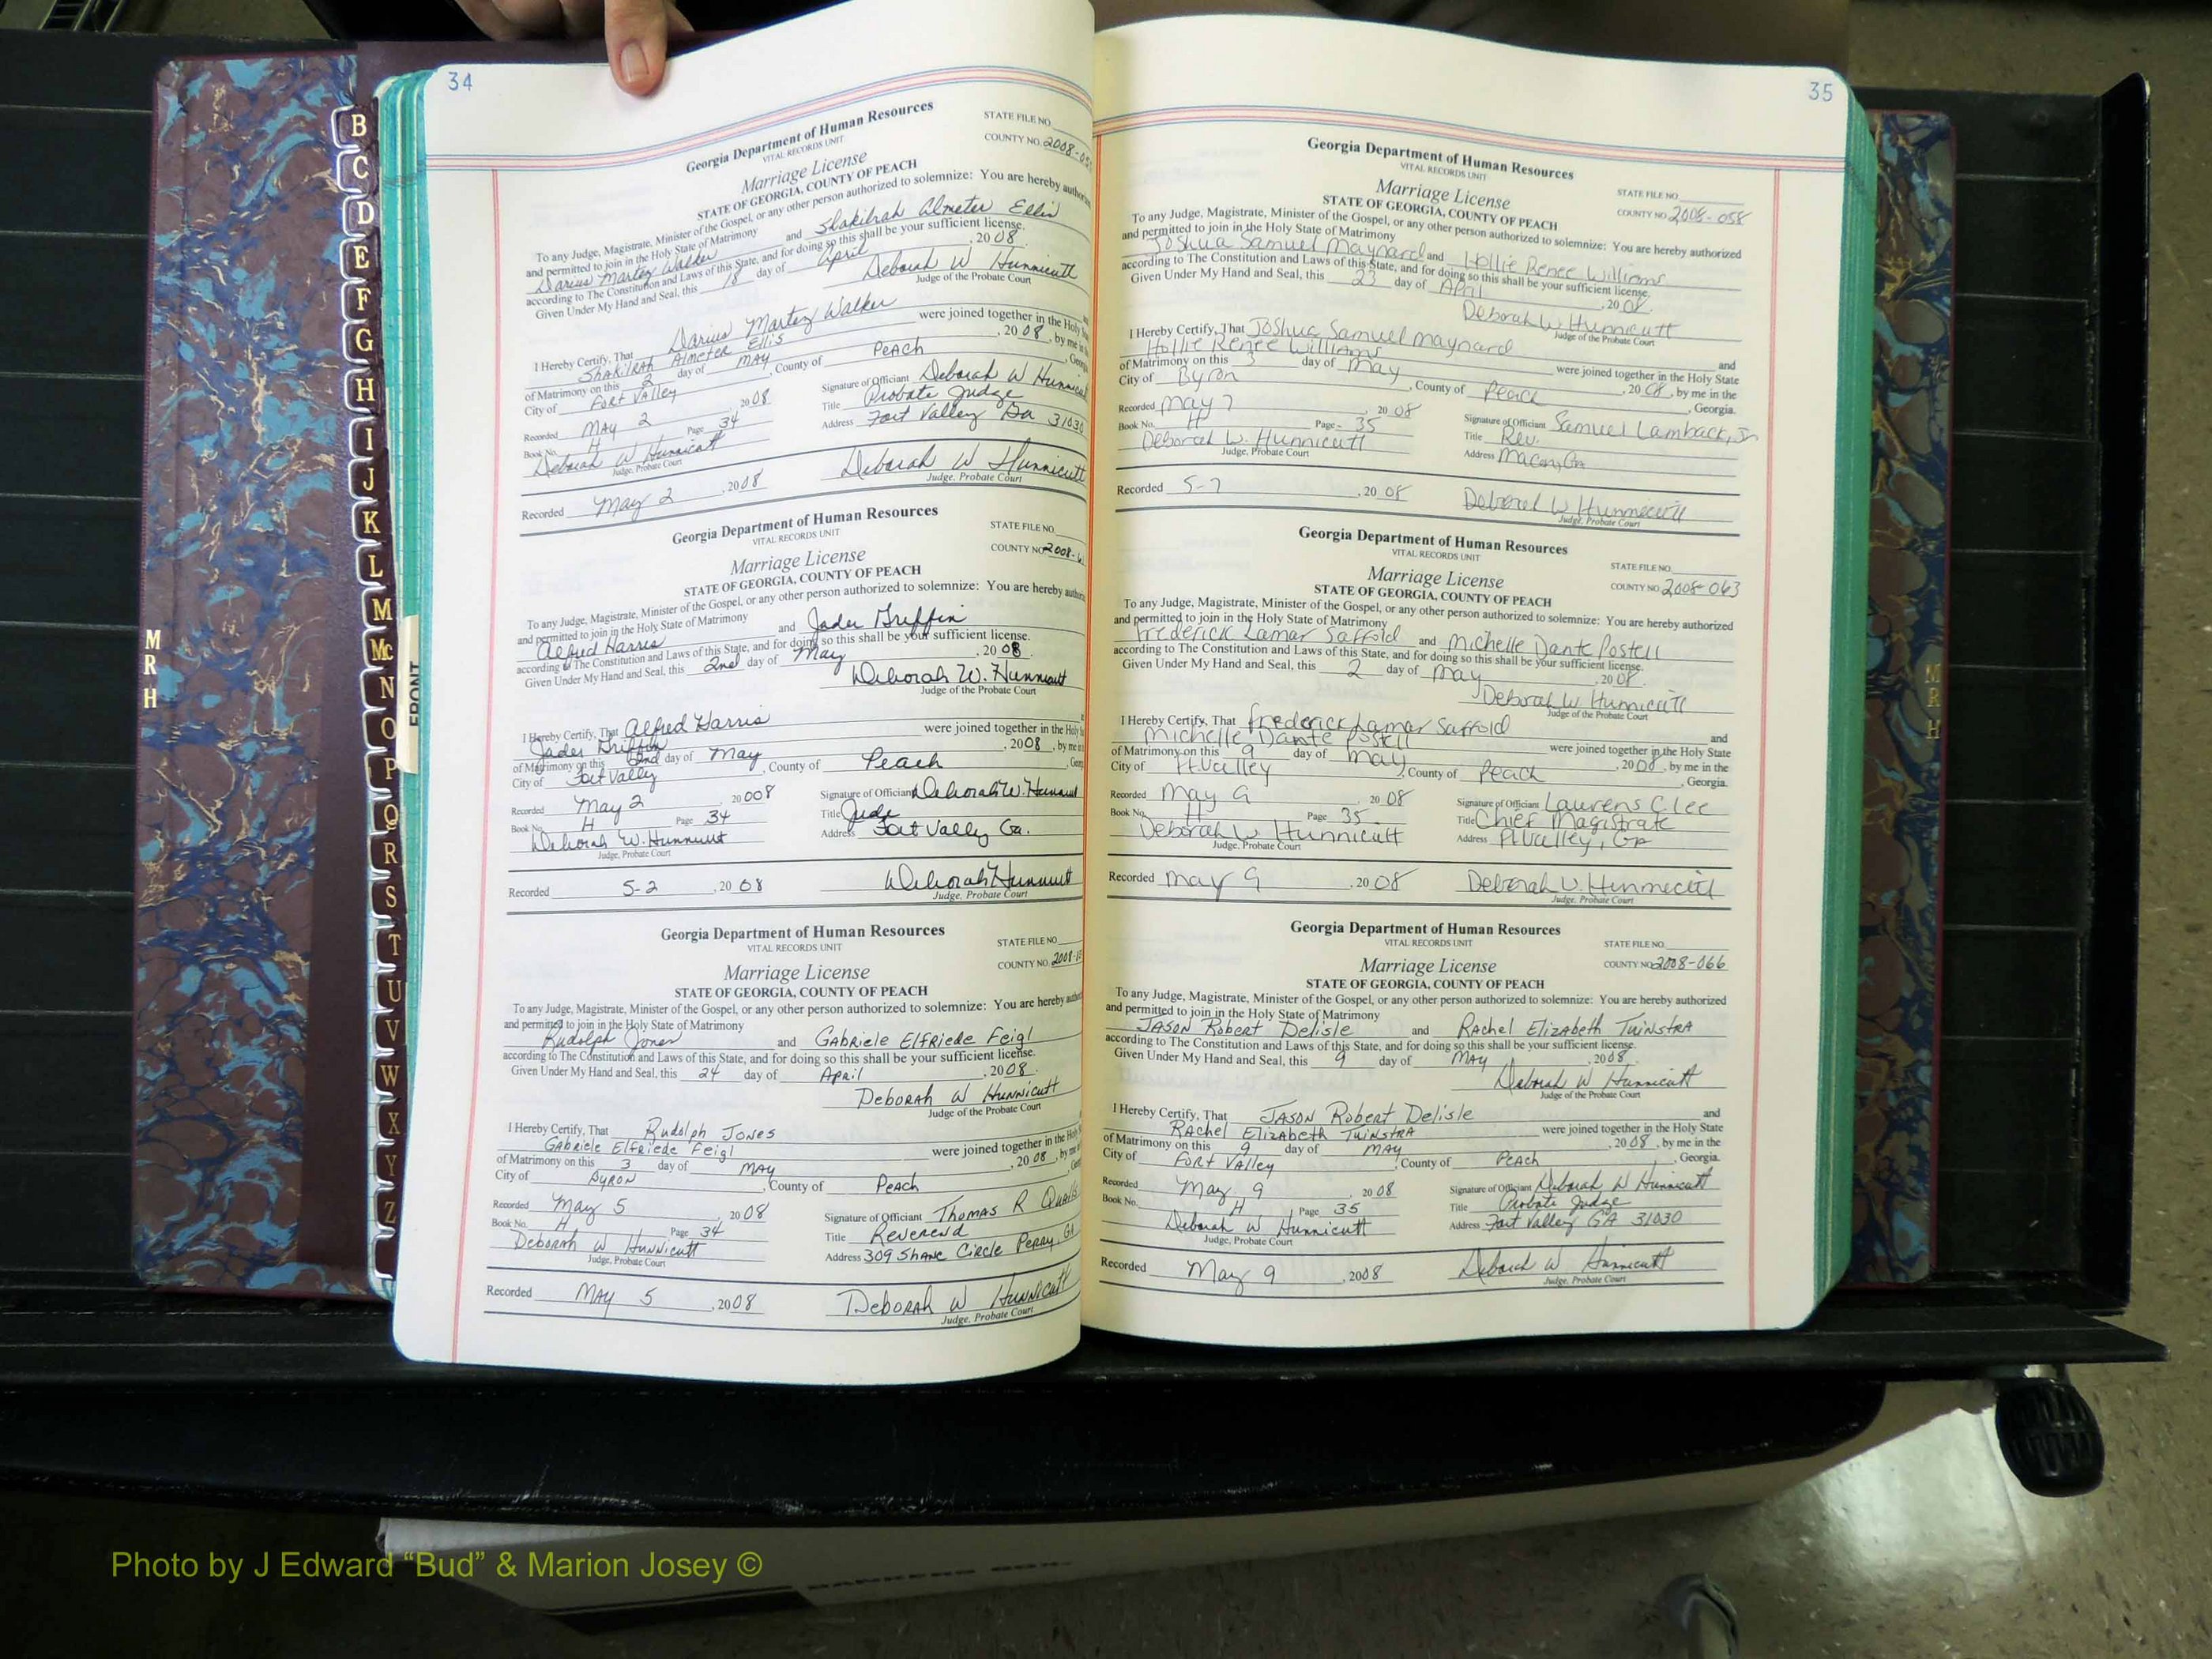 34
Georgia Department of Human Resources
VITAL RECORDS UNIT
STATE FILE NO.
COUNTY NO. 2008-
Marriage License
STATE OF GEORGIA, COUNTY OF PEACH
To any Judge, Magistrate, Minister of the Gospel, or any other person authorized to solemnize: You are hereby
and permitted to join in the Holy State of Matrimony
Darius Martez Walker and Shakilrah Almeter Ellis
according to The Constitution and Laws of this State, and for doing so this shall be your sufficient license.
Given Under My Hand and Seal, this 18 day of April, 2008.
Deborah W Hunnicutt
Judge of the Probate Court
I Hereby Certify, That Darius Martez Walker
Shakilrah Almeter Ellis were joined together in the Holy
of Matrimony on this 2 day of MAY, 2008, by me in
City of Fort Valley, County of Peach
Recorded MAY 2 2008
Signature of Officiant Deborah W
Book No. H Page 34
Title Probate Judge
Deborah W Hunnicutt
Address Fort Valley Ga 31030
Judge, Probate Court
Recorded May 2, 2008
Deborah W Hunnicutt
Judge, Probate Court
Georgia Department of Human Resources
VITAL RECORDS UNIT
STATE FILE NO.
COUNTY NO. 2008-
Marriage License
STATE OF GEORGIA, COUNTY OF PEACH
To any Judge, Magistrate, Minister of the Gospel, or any other person authorized to solemnize: You are hereby
and permitted to join in the Holy State of Matrimony
Alfred Harris and Jader Griffin
according to The Constitution and Laws of this State, and for doing so this shall be your sufficient license.
Given Under My Hand and Seal, this 2nd day of May, 2008.
Deborah W. Hunnicutt
Judge of the Probate Court
I Hereby Certify, That Alfred Harris
Jader Griffin were joined together in the Holy
of Matrimony on this 2nd day of May, 2008, by me in
City of Fort Valley, County of Peach
Recorded May 2 20008
Signature of Officiant Deborah W. Hunnicutt
Book No. H Page 34
Title Judge
Deborah W. Hunnicutt
Address Fort Valley Ga.
Judge, Probate Court
Recorded 5-2, 2008
Deborah Hunnicutt
Judge, Probate Court
Georgia Department of Human Resources
VITAL RECORDS UNIT
STATE FILE NO.
COUNTY NO. 2008-
Marriage License
STATE OF GEORGIA, COUNTY OF PEACH
To any Judge, Magistrate, Minister of the Gospel, or any other person authorized to solemnize: You are hereby
and permitted to join in the Holy State of Matrimony
Rudolph Jones and Gabriele Elfriede Feigl
according to The Constitution and Laws of this State, and for doing so this shall be your sufficient license.
Given Under My Hand and Seal, this 24 day of April, 2008.
Deborah W Hunnicutt
Judge of the Probate Court
I Hereby Certify, That Rudolph Jones
Gabriele Elfriede Feigl were joined together in the Holy
of Matrimony on this 3 day of MAY, 2008, by me
City of Byron, County of Peach
Recorded May 5, 2008
Signature of Officiant Thomas R
Book No. H Page 34
Title Reverend
Deborah W Hunnicutt
Address 309 Shane Circle Perry, GA
Judge, Probate Court
Recorded MAY 5, 2008
Deborah W Hunnicutt
Judge, Probate Court
35
Georgia Department of Human Resources
VITAL RECORDS UNIT
STATE FILE NO.
COUNTY NO. 2008-058
Marriage License
STATE OF GEORGIA, COUNTY OF PEACH
To any Judge, Magistrate, Minister of the Gospel, or any other person authorized to solemnize: You are hereby authorized
and permitted to join in the Holy State of Matrimony
Joshua Samuel Maynard and Hollie Renee Williams
according to The Constitution and Laws of this State, and for doing so this shall be your sufficient license.
Given Under My Hand and Seal, this 23 day of April, 2008.
Deborah W. Hunnicutt
Judge of the Probate Court
I Hereby Certify, That Joshua Samuel Maynard and
Hollie Renee Williams were joined together in the Holy State
of Matrimony on this 3 day of May, 2008, by me in the
City of Byron, County of Peach, Georgia.
Recorded May 7, 2008
Signature of Officiant Samuel Lamback, Jr
Book No. H Page 35
Title Rev.
Deborah W. Hunnicutt
Address Macon, Ga
Judge, Probate Court
Recorded 5-7, 2008
Deborah W Hunnicutt
Judge, Probate Court
Georgia Department of Human Resources
VITAL RECORDS UNIT
STATE FILE NO.
COUNTY NO. 2008-063
Marriage License
STATE OF GEORGIA, COUNTY OF PEACH
To any Judge, Magistrate, Minister of the Gospel, or any other person authorized to solemnize: You are hereby authorized
and permitted to join in the Holy State of Matrimony
Frederick Lamar Saffold and Michelle Dante Postell
according to The Constitution and Laws of this State, and for doing so this shall be your sufficient license.
Given Under My Hand and Seal, this 2 day of May, 2008.
Deborah W Hunnicutt
Judge of the Probate Court
I Hereby Certify, That Frederick Lamar Saffold and
Michelle Dante Postell were joined together in the Holy State
of Matrimony on this 9 day of May, 2008, by me in the
City of Ft. Valley, County of Peach, Georgia.
Recorded May 9, 2008
Signature of Officiant Laurens C Lee
Book No. H Page 35
Title Chief Magistrate
Deborah W Hunnicutt
Address Ft Valley, Ga
Judge, Probate Court
Recorded May 9, 2008
Deborah W. Hunnicutt
Judge, Probate Court
Georgia Department of Human Resources
VITAL RECORDS UNIT
STATE FILE NO.
COUNTY NO. 2008-066
Marriage License
STATE OF GEORGIA, COUNTY OF PEACH
To any Judge, Magistrate, Minister of the Gospel, or any other person authorized to solemnize: You are hereby authorized
and permitted to join in the Holy State of Matrimony
Jason Robert Delisle and Rachel Elizabeth Tuinstra
according to The Constitution and Laws of this State, and for doing so this shall be your sufficient license.
Given Under My Hand and Seal, this 9 day of May, 2008.
Deborah W Hunnicutt
Judge of the Probate Court
I Hereby Certify, That Jason Robert Delisle and
Rachel Elizabeth Tuinstra were joined together in the Holy State
of Matrimony on this 9 day of May, 2008, by me in the
City of Fort Valley, County of Peach, Georgia.
Recorded May 9, 2008
Signature of Officiant Deborah W Hunnicutt
Book No. H Page 35
Title Probate Judge
Deborah W Hunnicutt
Address Fort Valley GA 31030
Judge, Probate Court
Recorded May 9, 2008
Deborah W Hunnicutt
Judge, Probate Court
B
C
D
E
F
G
H
I
J
K
L
M
Mc
N
O
P
Q
R
S
T
U
V
W
X
Y
Z
FRONT
M
R
H
M
R
H
Photo by J Edward “Bud” & Marion Josey ©
BANKERS BOX